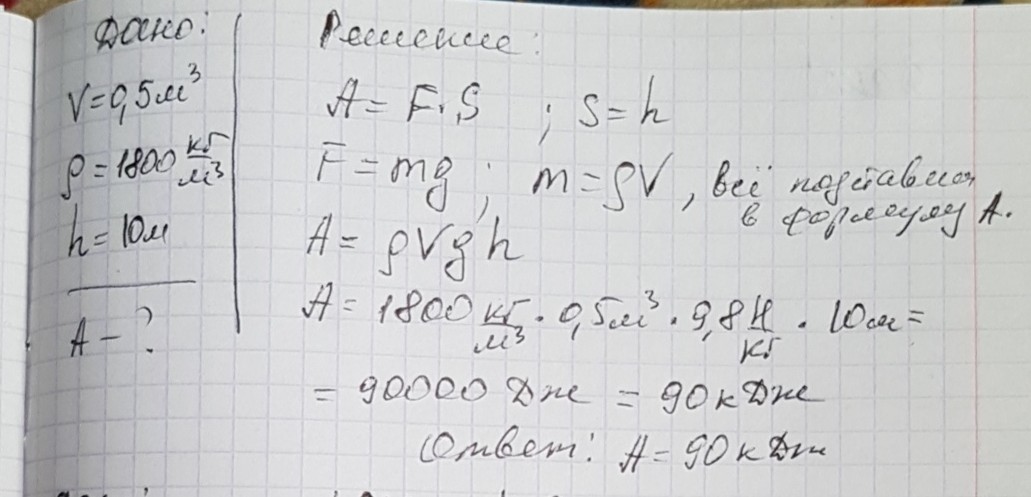 Дано:
V=0,5м³
ρ=1800 кг/м³
h=10м
A-?
Решение:
A=F·S ; S=h
F=mg ; m=ρV, всё подставим
в формулу A.
A=ρVgh
A=1800 кг/м³ · 0,5м³ · 9,8 Н/кг · 10м=
= 90000 Дж = 90кДж
Ответ: A=90кДж